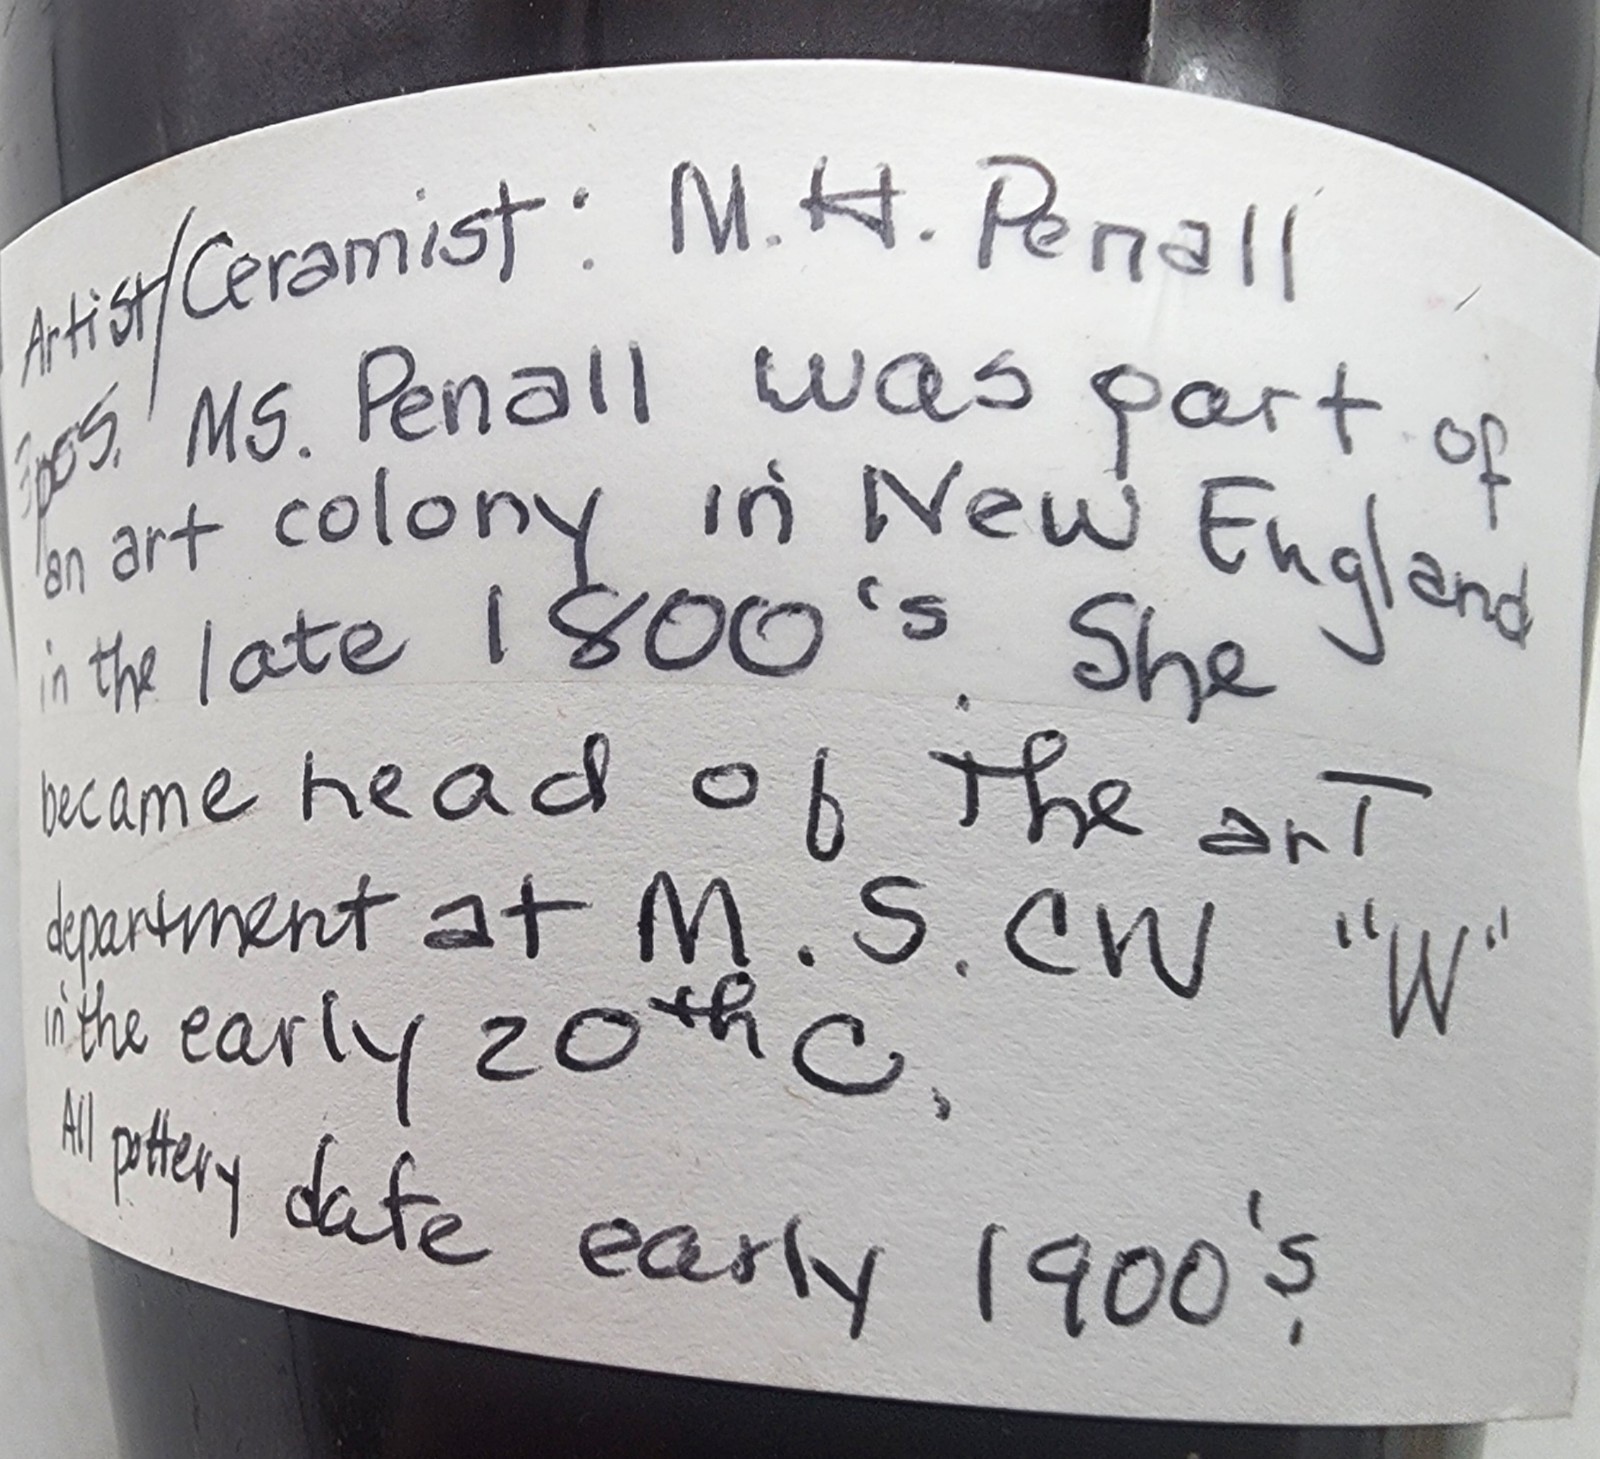 Artist/Ceramist: M.H. Penall
3pcs. MS. Penall was part of
an art colony in New England
in the late 1800's. She
became head of the art
department at M.S.CW "W"
in the early 20th C.
All pottery date early 1900's.